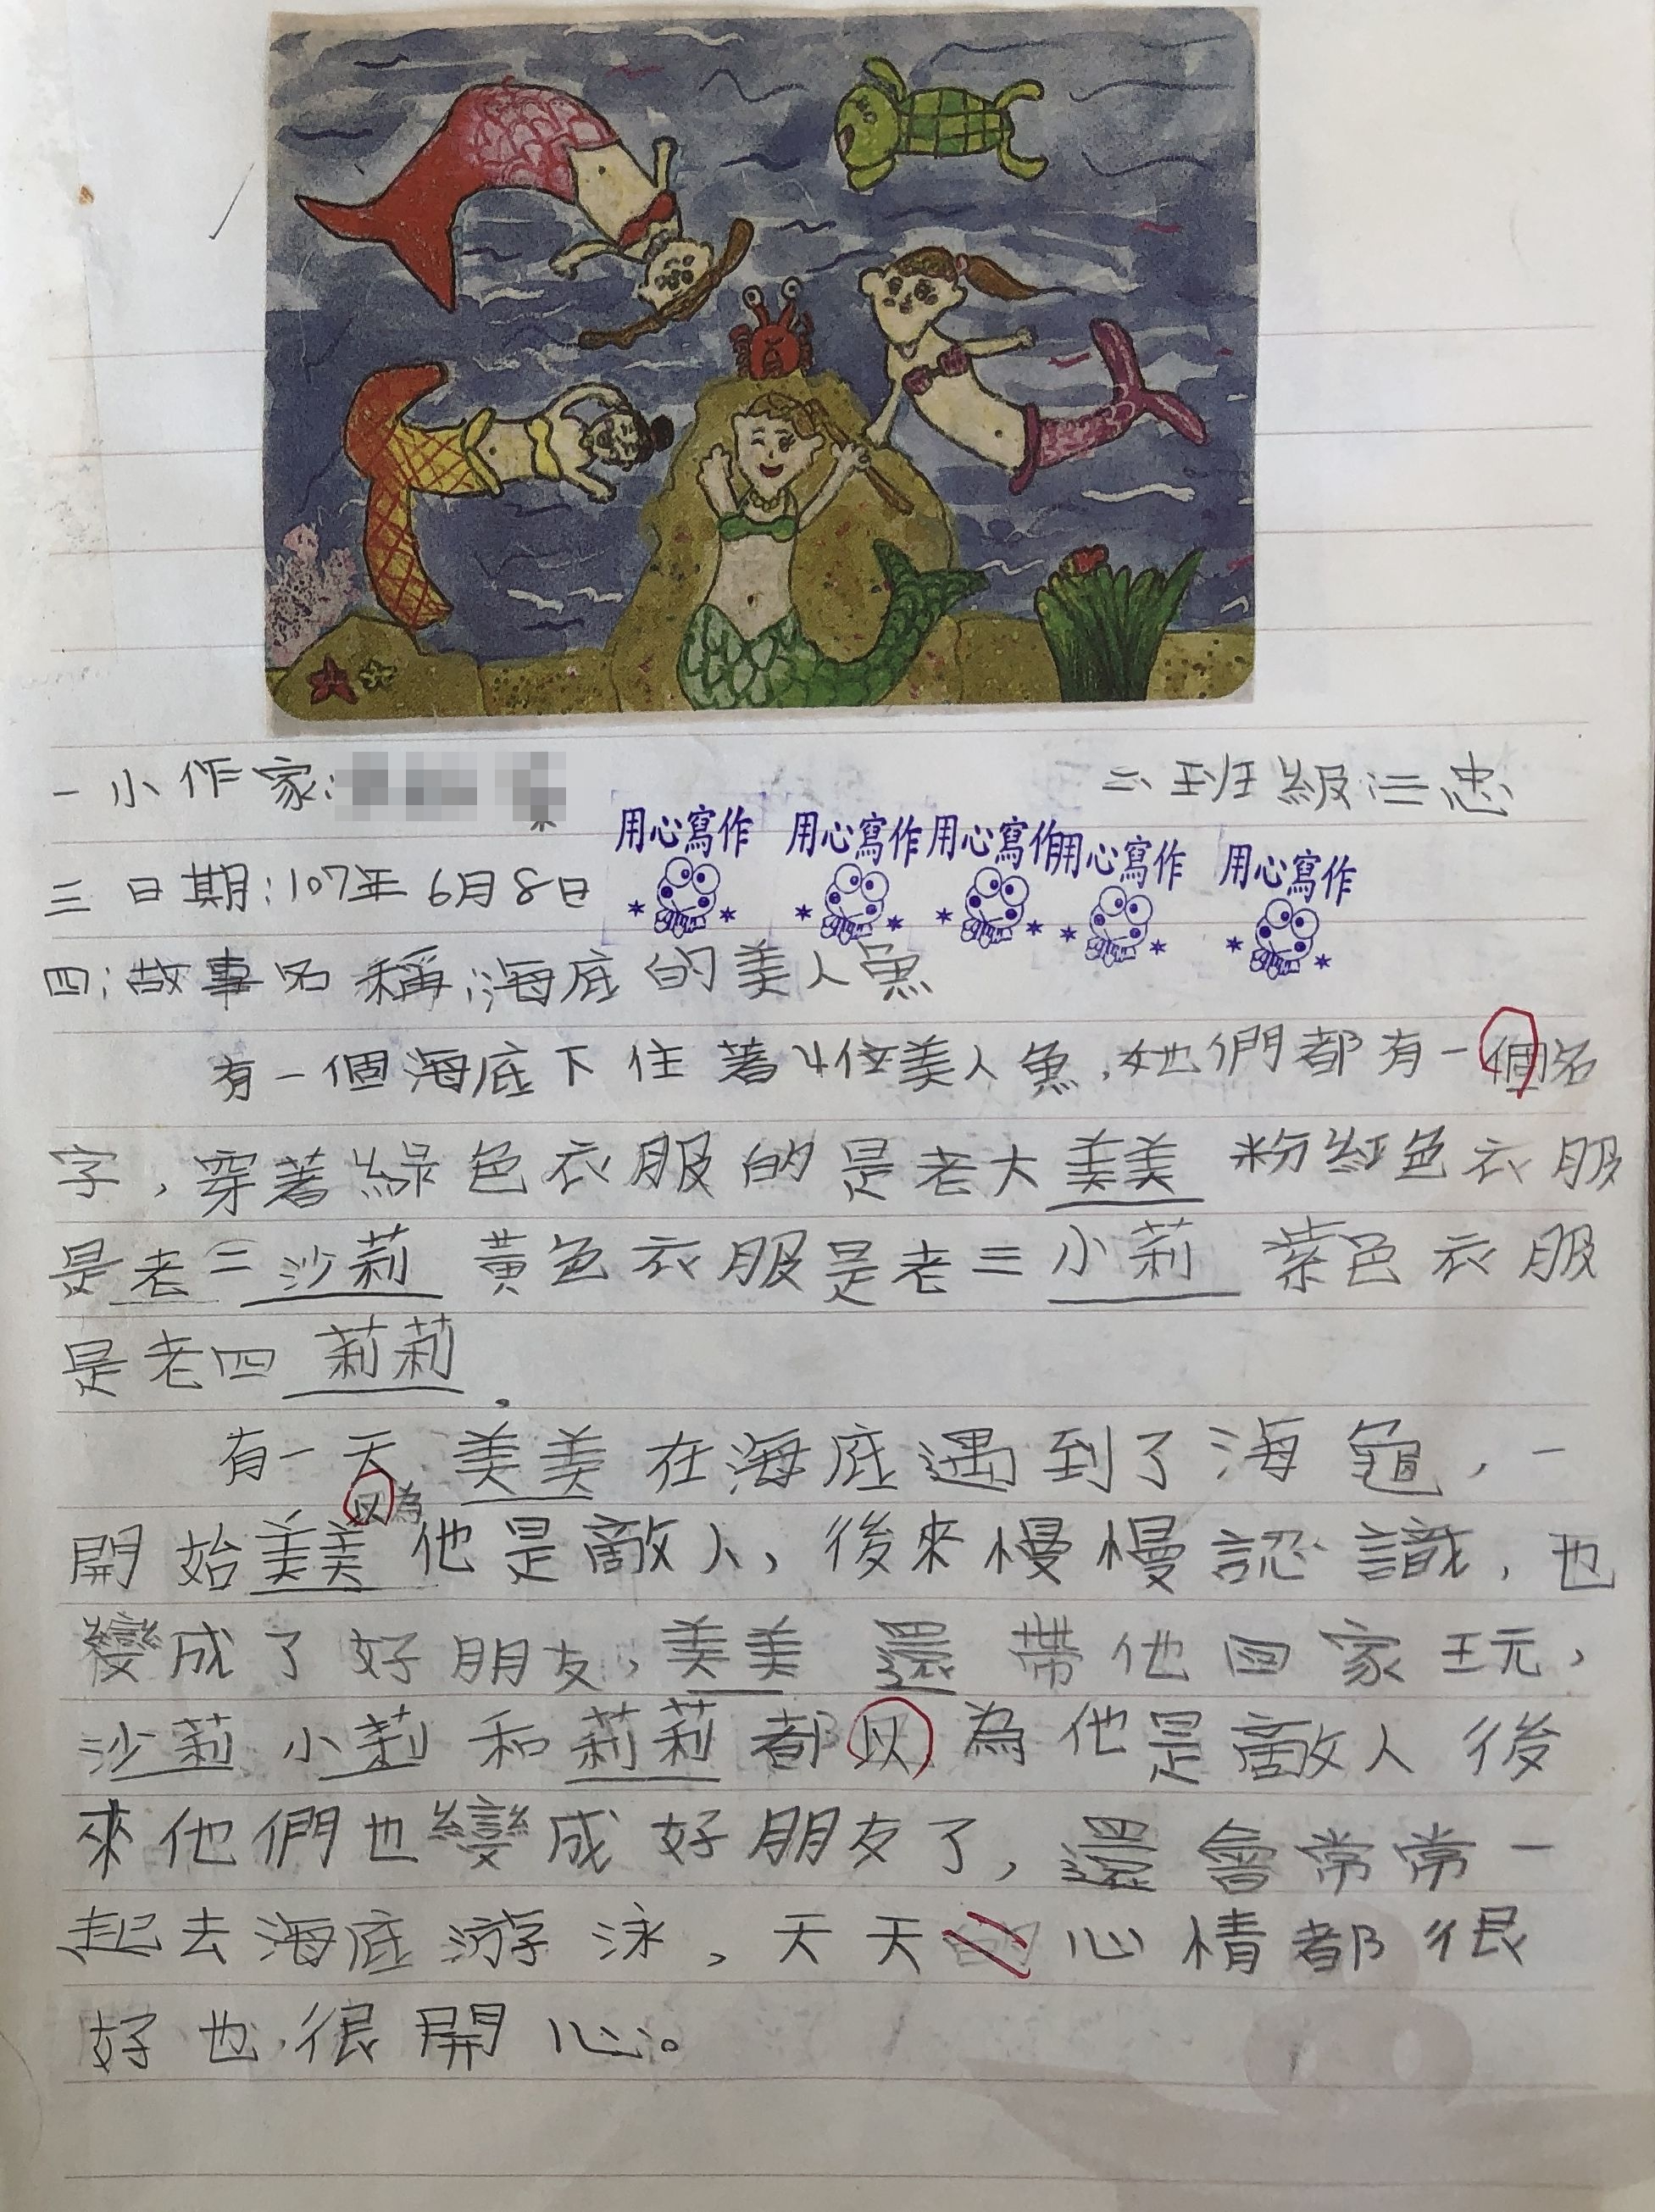 一小作家: 二班級:二忠
用心寫作 用心寫作 用心寫作 用心寫作 用心寫作
三日期:107年6月8日
四:故事名稱:海底的美人魚
有一個海底下住著4位美人魚,她們都有一個名
字,穿著綠色衣服的是老大美美 粉紅色衣服
是老二沙莉 黃色衣服是老三小莉 紫色衣服
是老四 莉莉。
有一天,美美在海底遇到了海龜,一
以為
開始美美他是敵人,後來慢慢認識,也
變成了好朋友,美美還帶他回家玩,
沙莉小莉和莉莉都以為他是敵人後
來他們也變成好朋友了,還會常常一
起去海底游泳,天天的心情都很
好也很開心。